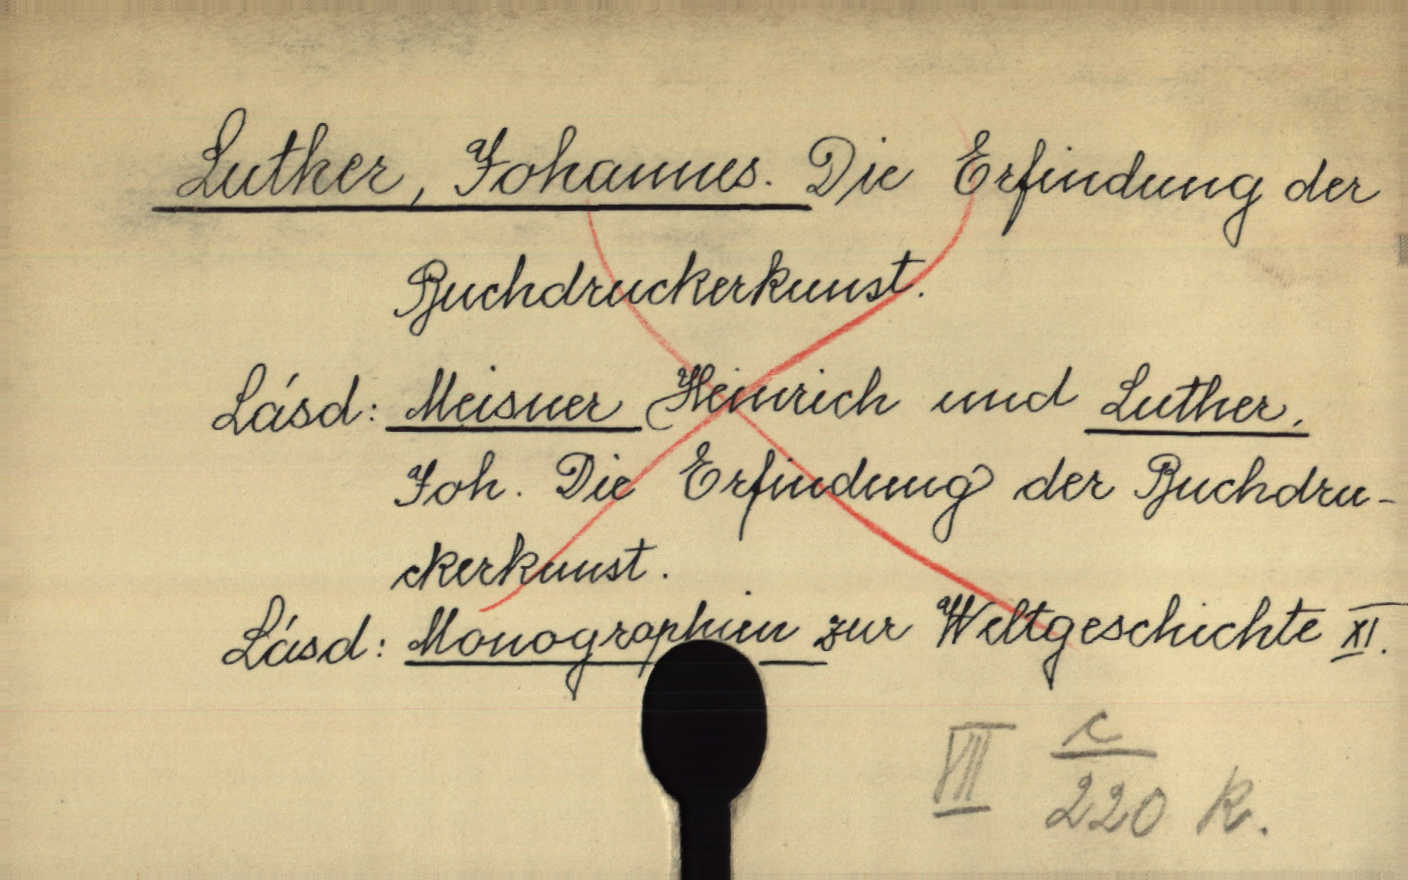 Luther, Johannes. Die Erfindung der
Buchdruckerkunst.
Lásd: Meisner Heinrich und Luther,
Joh. Die Erfindung der Buchdru-
ckerkunst.
Lásd: Monographien zur Weltgeschichte XI.
VII c/220 k.